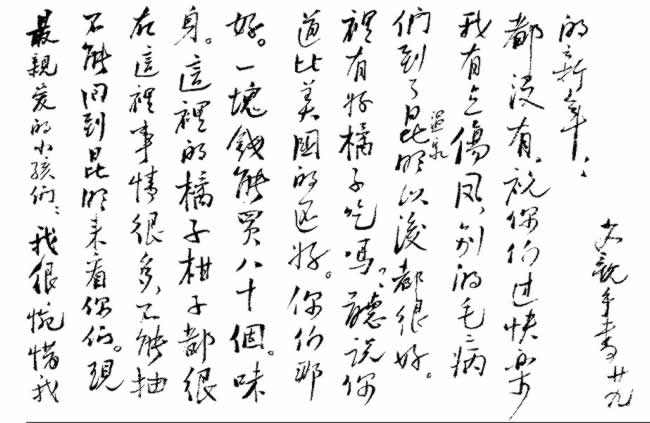 最親爱的小孩们：我很惋惜我
不能回到昆明来看你们。現
在這裡事情很多，不能抽
身。這裡的橘子柑子都很
好。一塊錢能買八十個。味
道比美國的还好。你们那
裡有好橘子吃嗎？聽说你
们到了昆明温泉以後都很好。
我有点傷风，别的毛毛病
都没有。祝你们过快乐
的新年：
父親手書 廿九